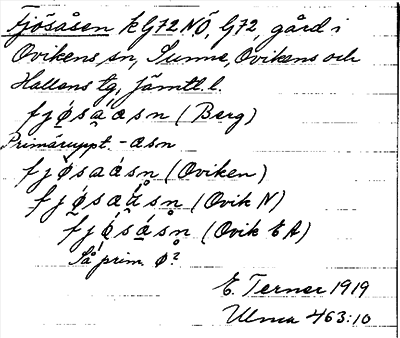 Fjösåsen EG72 NÖ, G72, gård i
Ovikens sn, Sunne, Ovikens och
Hallens tg, Jämtl. l.
fjøsaasn (Berg)
Primäruppt. -asn
fjøsaásn (Oviken)
fjǿsaasn (Ovik N)
fjǿsásn (Ovik EA)
Så prim. ø?
E. Terner 1919
Ulma 463:10